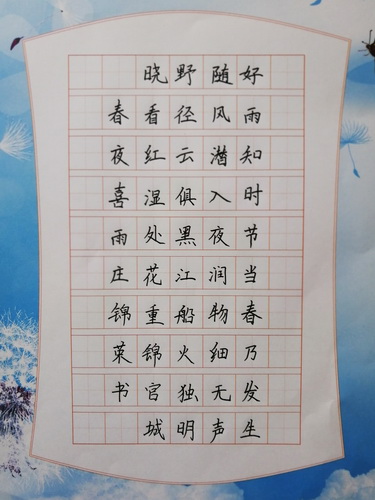 好雨知时节当春乃发生
随风潜入夜润物细无声
野径云俱黑江船火独明
晓看红湿处花重锦官城
春夜喜雨庄锦书